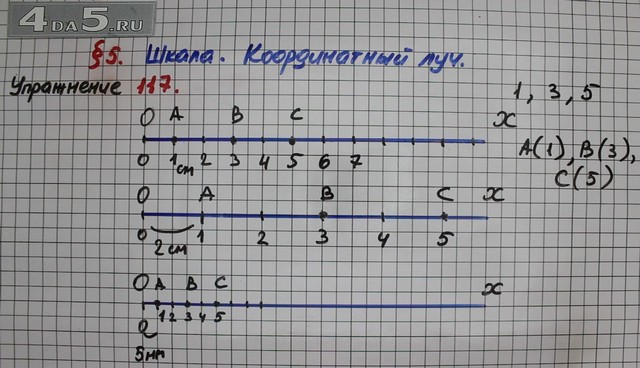 4DA5.RU
§5. Шкала. Координатный луч.
Упражнение 117.
1, 3, 5
A(1), B(3),
C(5)
O A B C x
0 1 2 3 4 5 6 7
см
O A B C x
0 1 2 3 4 5
2 см
O A B C x
0 1 2 3 4 5
5мм